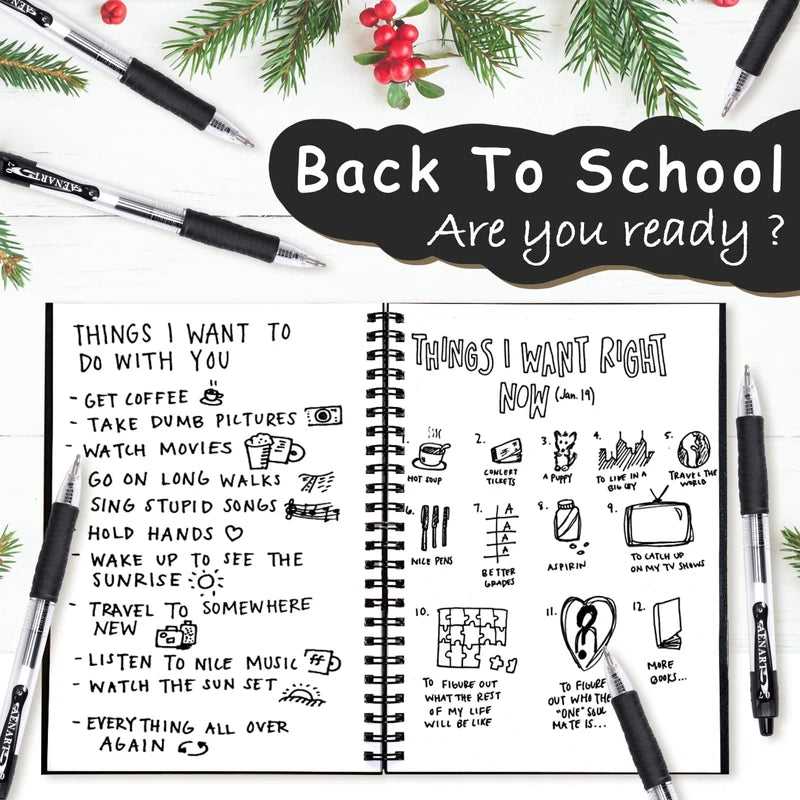 Back To School
Are you ready ?
AENART
THINGS I WANT TO
DO WITH YOU
- GET COFFEE
- TAKE DUMB PICTURES
- WATCH MOVIES
GO ON LONG WALKS
SING STUPID SONGS
HOLD HANDS
- WAKE UP TO SEE THE
SUNRISE
- TRAVEL TO SOMEWHERE
NEW
- LISTEN TO NICE MUSIC
- WATCH THE SUN SET
- EVERYTHING ALL OVER
AGAIN
THINGS I WANT RIGHT
NOW (Jan. 19)
1.
HOT SOUP
2.
CONCERT
TICKETS
3.
A PUPPY
4.
TO LIVE IN A
BIG CITY
5.
TRAVEL THE
WORLD
6.
NICE PENS
7.
A
A
A
A
BETTER
GRADES
8.
ASPIRIN
9.
TO CATCH UP
ON MY TV SHOWS
10.
TO FIGURE OUT
WHAT THE REST
OF MY LIFE
WILL BE LIKE
11.
TO FIGURE
OUT WHO THE
"ONE" SOUL
MATE IS...
12.
MORE
BOOKS...
AENART
AENART
0.7